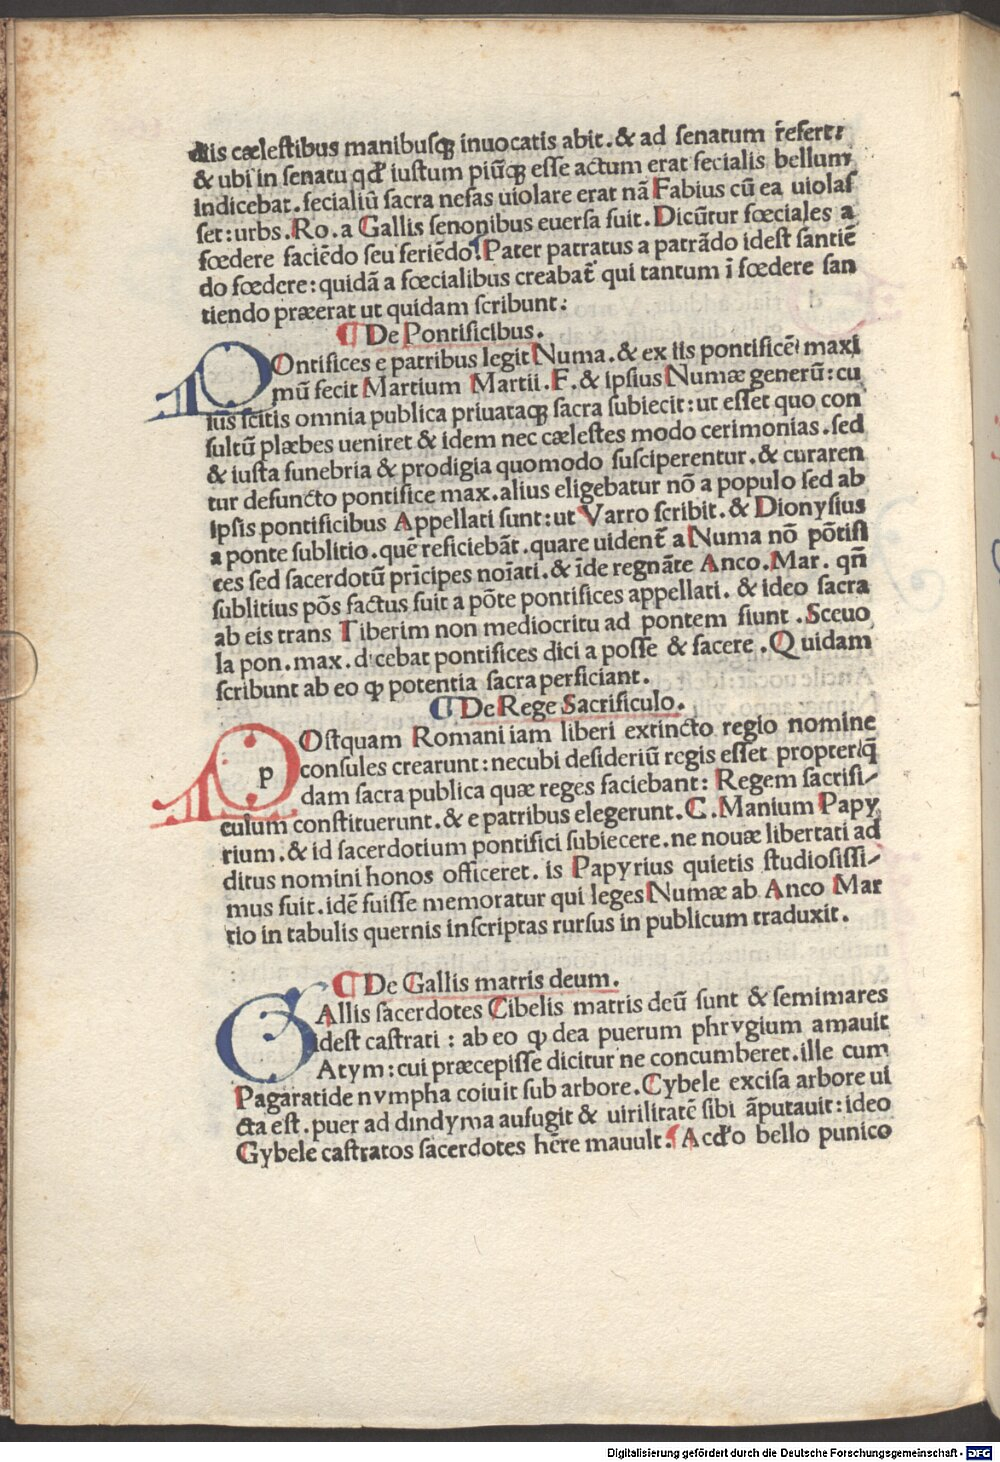 diis cælestibus manibusqꝫ inuocatis abit. & ad senatum r̃efert:
& ubi in senatu qđ iustum piũqꝫ esse actum erat fecialis bellum
indicebat. fecialiũ sacra nefas uiolare erat nã Fabius cũ ea uiolas
set: urbs. Ro. a Gallis senonibus euersa fuit. Dicũtur fœciales a
fœdere faciẽdo seu feriẽdo. Pater patratus a patrãdo idest santiẽ
do fœdere: quidã a fœcialibus creabat̃ qui tantum ĩ fœdere san
tiendo præerat ut quidam scribunt:
¶ De Pontificibus.
POntifices e patribus legit Numa. & ex iis pontificẽ maxi
mũ fecit Martium Martii. F. & ipsius Numæ generũ: cu
ius scitis omnia publica priuataqꝫ sacra subiecit: ut esset quo con
sultũ plæbes ueniret & idem nec cælestes modo cerimonias. sed
& iusta funebria & prodigia quomodo susciperentur. & curaren
tur defuncto pontifice max. alius eligebatur nõ a populo sed ab
ipsis pontificibus Appellati sunt: ut Varro scribit. & Dionysius
a ponte sublitio. quẽ reficiebãt. quare uident̃ a Numa nõ põtifi
ces sed sacerdotũ prĩcipes noĩati. & ĩde regnãte Anco. Mar. qñ
sublitius põs factus fuit a põte pontifices appellati. & ideo sacra
ab eis trans Tiberim non mediocritu ad pontem fiunt. Sceuo
la pon. max. dicebat pontifices dici a posse & facere. Quidam
scribunt ab eo ꝙ potentia sacra perficiant.
¶ De Rege Sacrificulo.
p
POstquam Romani iam liberi extincto regio nomine
consules crearunt: necubi desideriũ regis esset propter q̃
dam sacra publica quæ reges faciebant: Regem sacrifi/
culum constituerunt. & e patribus elegerunt. C. Manium Papy
rium. & id sacerdotium pontifici subiecere. ne nouæ libertati ad
ditus nomini honos officeret. is Papyrius quietis studiosissi/
mus fuit. idẽ fuisse memoratur qui leges Numæ ab Anco Mar
tio in tabulis quernis inscriptas rursus in publicum traduxit.
¶ De Gallis matris deum.
GAllis sacerdotes Cibelis matris deũ sunt & semimares
idest castrati: ab eo ꝙ dea puerum phrygium amauit
Atym: cui præcepisse dicitur ne concumberet. ille cum
Pagaratide nympha coiuit sub arbore. Cybele excisa arbore ui
cta est. puer ad dindyma aufugit & uirilitatẽ sibi ãputauit: ideo
Cybele castratos sacerdotes hẽre mauult. Acđo bello punico
Digitalisierung gefördert durch die Deutsche Forschungsgemeinschaft - DFG